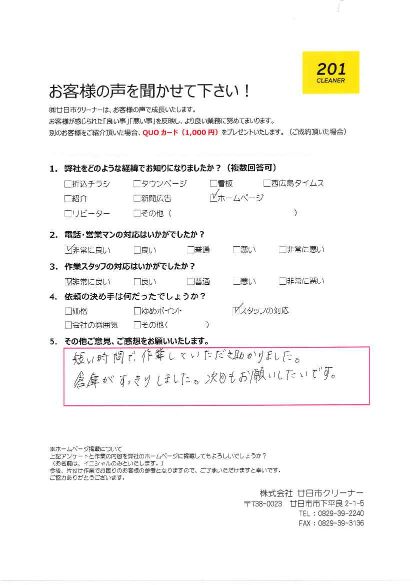 201
CLEANER
お客様の声を聞かせて下さい！
㈱廿日市クリーナーは、お客様の声で成長いたします。
お客様が感じられた「良い事」「悪い事」を反映し、より良い業務に努めてまいります。
別のお客様をご紹介頂いた場合、QUOカード（1,000円）をプレゼントいたします。（ご成約頂いた場合）
1. 弊社をどのような経緯でお知りになりましたか？（複数回答可）
□折込チラシ □タウンページ □看板 □西広島タイムス
□紹介 □新聞広告 ☑ホームページ
□リピーター □その他（ ）
2. 電話・営業マンの対応はいかがでしたか？
☑非常に良い □良い □普通 □悪い □非常に悪い
3. 作業スタッフの対応はいかがでしたか？
☑非常に良い □良い □普通 □悪い □非常に悪い
4. 依頼の決め手は何だったでしょうか？
□価格 □ゆめポイント ☑スタッフの対応
□会社の雰囲気 □その他（ ）
5. その他ご意見、ご感想をお願いいたします。
短い時間で、作業していただき助かりました。
倉庫がすっきりしました。次回もお願いしたいです。
※ホームページ掲載について
上記アンケートと作業の内容を弊社のホームページに掲載してもよろしいでしょうか？
（お名前は、イニシャルのみといたします。）
今後、片付け作業でお困りのお客様の参考となりますので、ご了承いただけますと幸いです。
ご協力ありがとうございます。
株式会社 廿日市クリーナー
〒738-0023 廿日市市下平良2-1-5
TEL：0829-39-2240
FAX：0829-39-3136